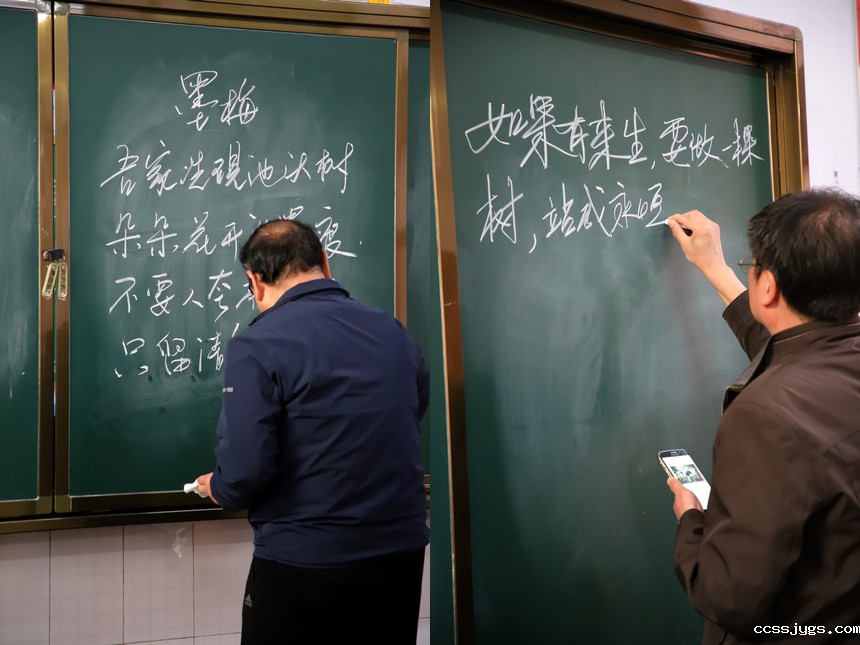 墨梅
吾家洗硯池头树
朵朵花开 痕.
不要人夸
只留清
如果有来生,要做一棵
树,站成永恒
ccssjygs.com